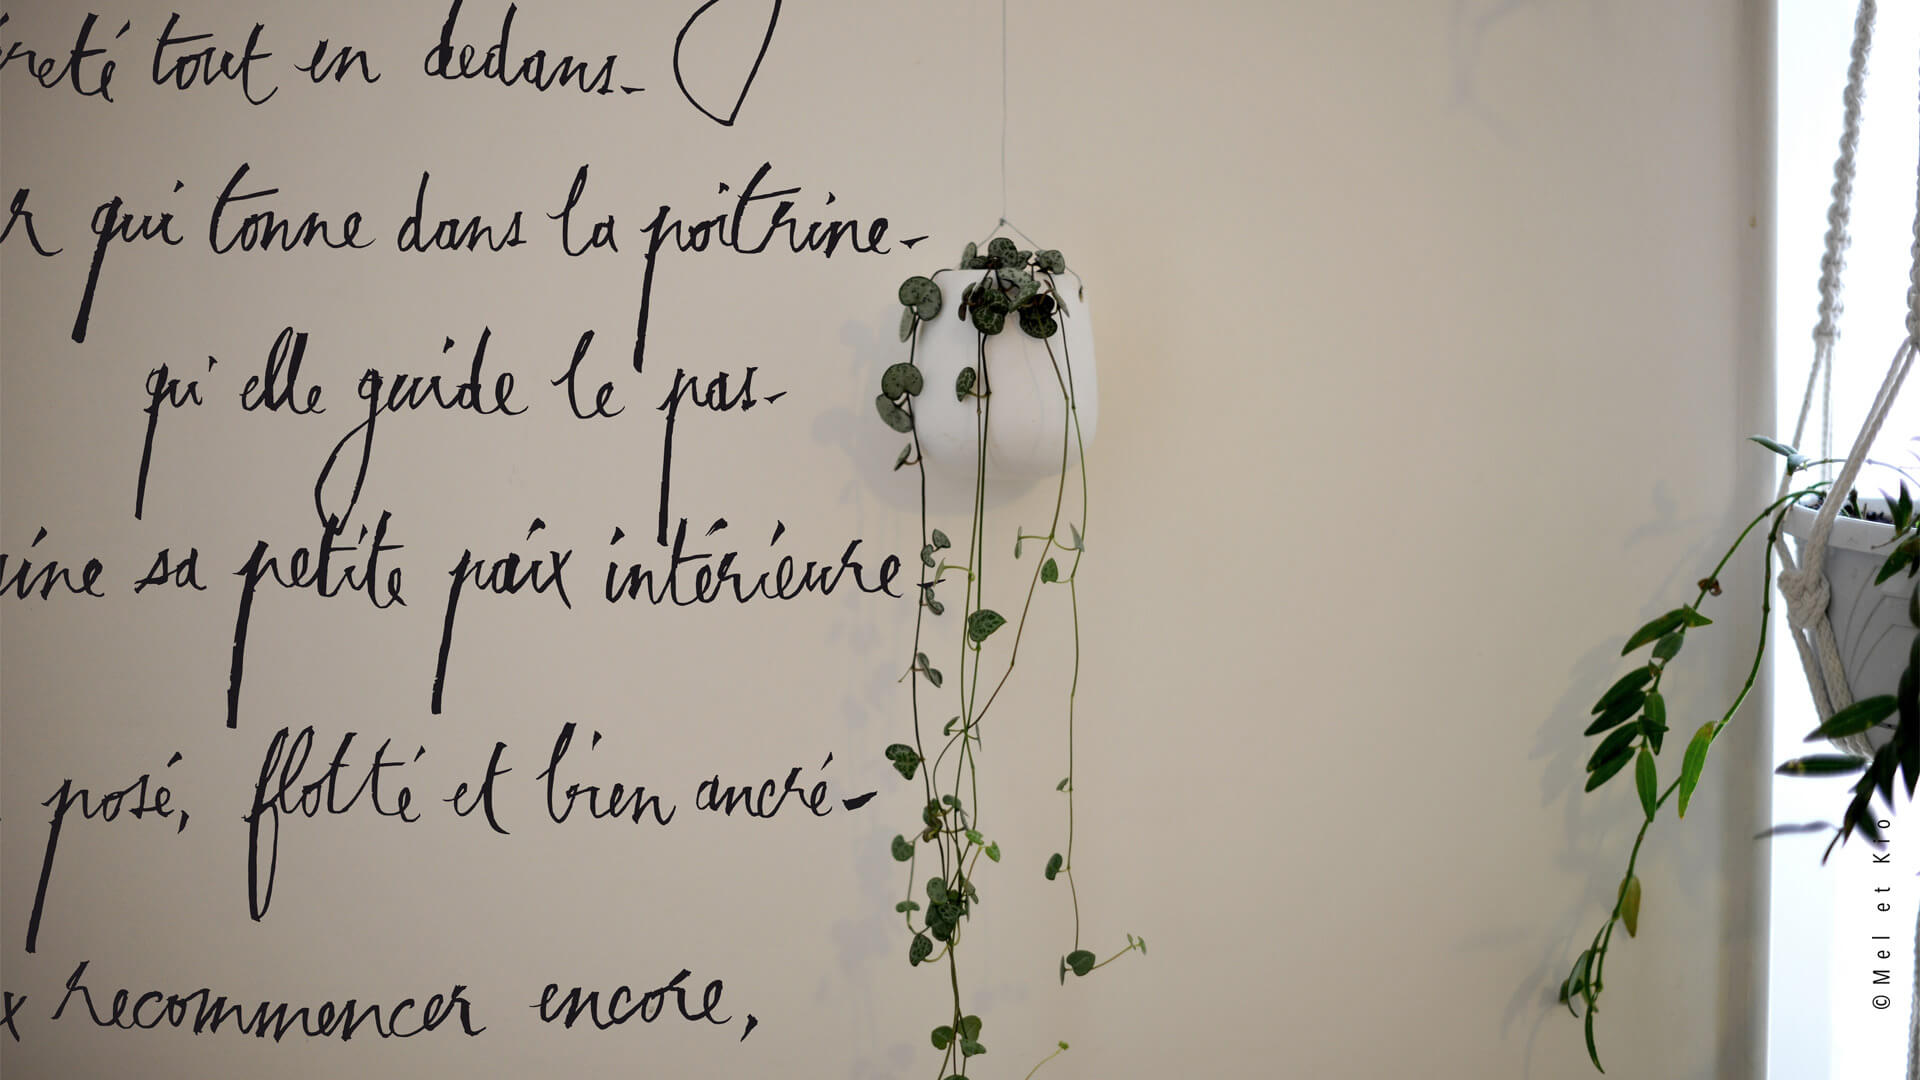 reté tout en dedans-
r qui tonne dans la poitrine-
qu'elle guide le pas-
uine sa petite paix intérieure-
posé, flotté et bien ancré-
x recommencer encore,
©Mel et Kio